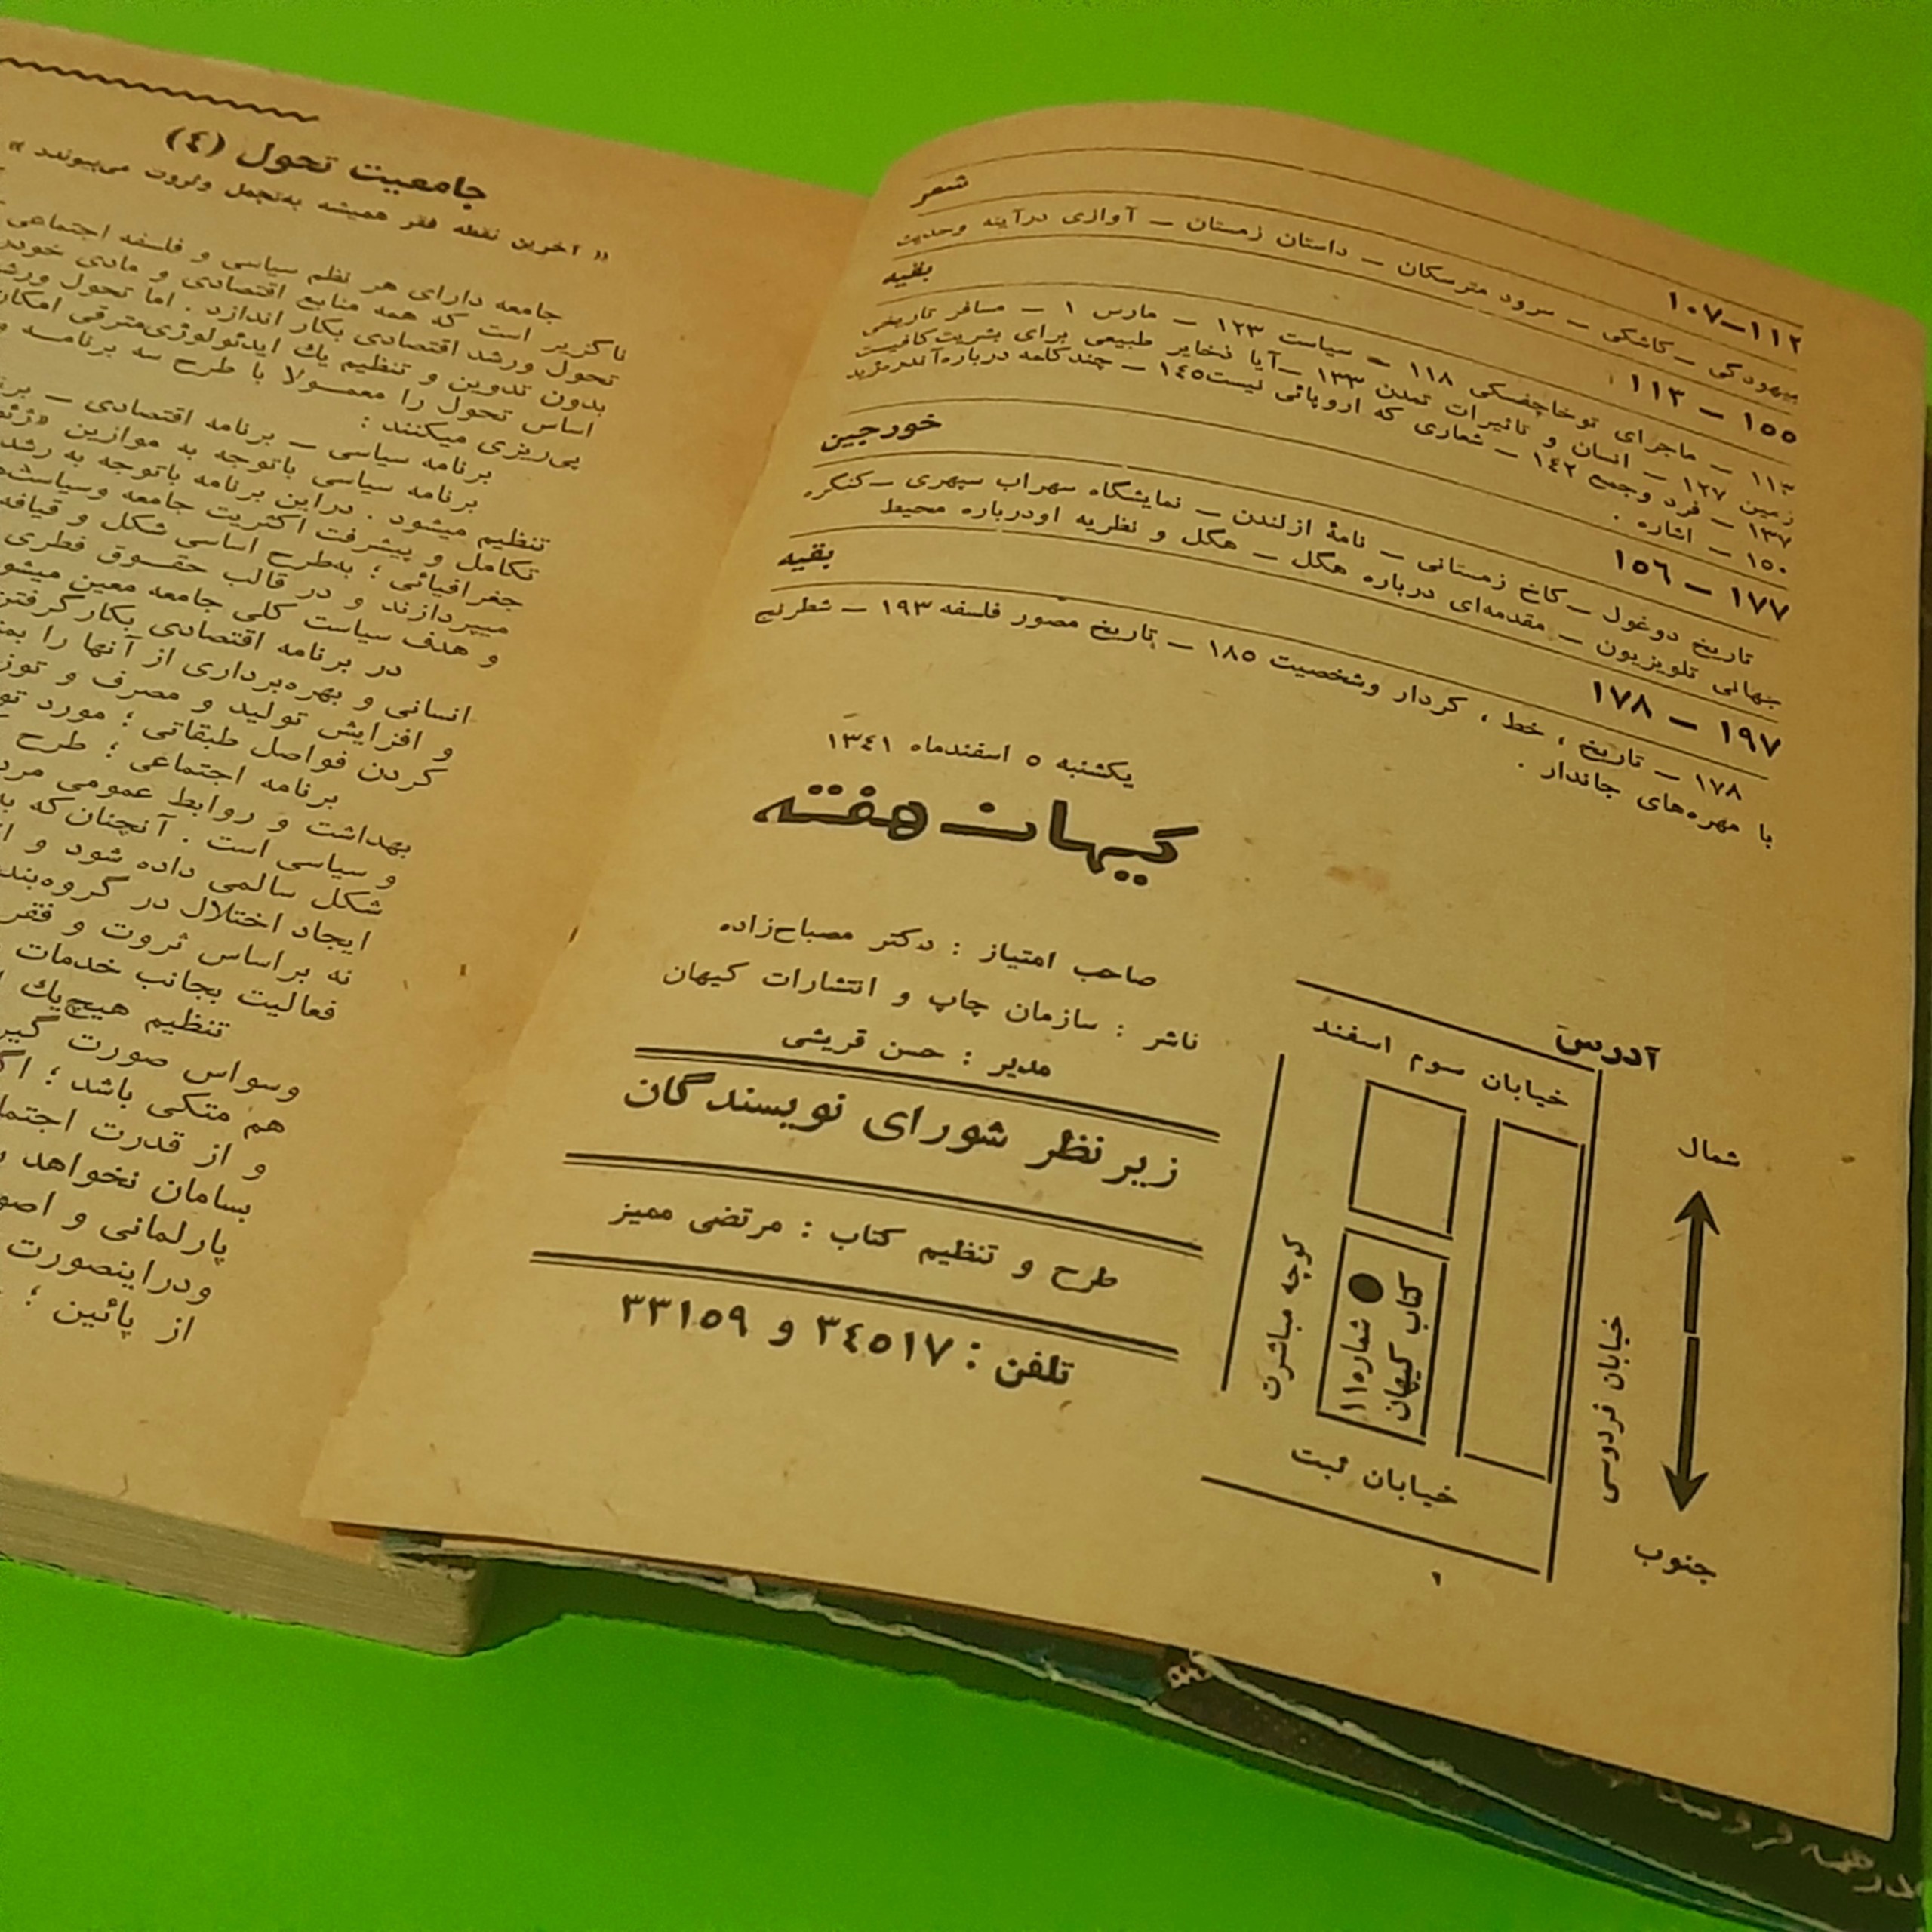 شعر
۱۰۷-۱۱۲
بیهودگی - کاشکی - سرود مترسکان - داستان زمستان - آوازی درآینه وحدیت
بقیه
۱۱۳ - ۱۵۵
۱۱۳ - ماجرای توخاچفسکی ۱۱۸ - سیاست ۱۲۳ - مارس ۱ - مسافر تاریخی
زمین ۱۲۷ - انسان و تاثیرات تمدن ۱۳۳ - آیا ذخایر طبیعی برای بشریت کافیست
۱۳۷ - فرد وجمع ۱۴۲ - شماری که اروپائی نیست ۱۴۵ - چندکلمه درباره آلدرمزید
۱۵۰ - اشاره .
خورجین
۱۵۶ - ۱۷۷
تاریخ دوغول - کاخ زمستانی - نامهٔ ازلندن - نمایشگاه سهراب سپهری - کنگره
جهانی تلویزیون - مقدمه‌ای درباره هگل - هگل و نظریه اودرباره محیط
بقیه
۱۷۸ - ۱۹۷
۱۷۸ - تاریخ ، خط ، کردار وشخصیت ۱۸۵ - تاریخ مصور فلسفه ۱۹۳ - شطرنج
با مهره‌های جاندار .
یکشنبه ۵ اسفندماه ۱۳۴۱
کیهان هفته
صاحب امتیاز : دکتر مصباح‌زاده
ناشر : سازمان چاپ و انتشارات کیهان
مدیر : حسن قریشی
زیر نظر شورای نویسندگان
طرح و تنظیم کتاب : مرتضی ممیز
تلفن : ۳۴۵۱۷ و ۳۳۱۵۹
آدرس
خیابان سوم اسفند
شمال
کوچه مباشرت
شماره ۱۱۵
کتاب کیهان
خیابان فردوسی
خیابان ثبت
جنوب
۶
جامعیت تحول (۴)
« آخرین نقطه فقر همیشه به‌تجمل وثروت می‌پیوندد »
جامعه دارای هر نظم سیاسی و فلسفه اجتماعی
ناگزیر است که همه منابع اقتصادی و مادی خودرا
تحول ورشد اقتصادی بکار اندازد . اما تحول ورشد
بدون تدوین و تنظیم یك ایدئولوژی‌مترقی امکان
اساس تحول را معمولا با طرح سه برنامه
پی‌ریزی میکنند :
برنامه سیاسی - برنامه اقتصادی -
برنامه سیاسی باتوجه به موازین
تنظیم میشود . دراین برنامه باتوجه به رشد
تکامل و پیشرفت اکثریت جامعه وسیاست
جغرافیائی ؛ به‌طرح اساسی شکل و قیافه
میپردازند و در قالب حقوق فطری
و هدف سیاست کلی جامعه معین میشود
در برنامه اقتصادی بکارگرفتن
انسانی و بهره‌برداری از آنها را
و افزایش تولید و مصرف و
کردن فواصل طبقاتی ؛ مورد
برنامه اجتماعی ؛ طرح
بهداشت و روابط عمومی
و سیاسی است . آنچنان‌که
شکل سالمی داده شود و
ایجاد اختلال در
نه براساس ثروت و فقر
فعالیت بجانب خدمات
تنظیم هیچ‌یك
وسواس صورت
هم متکی باشد ؛
و از قدرت
بسامان نخواهد
پارلمانی و
ودراینصورت
از پائین ؛